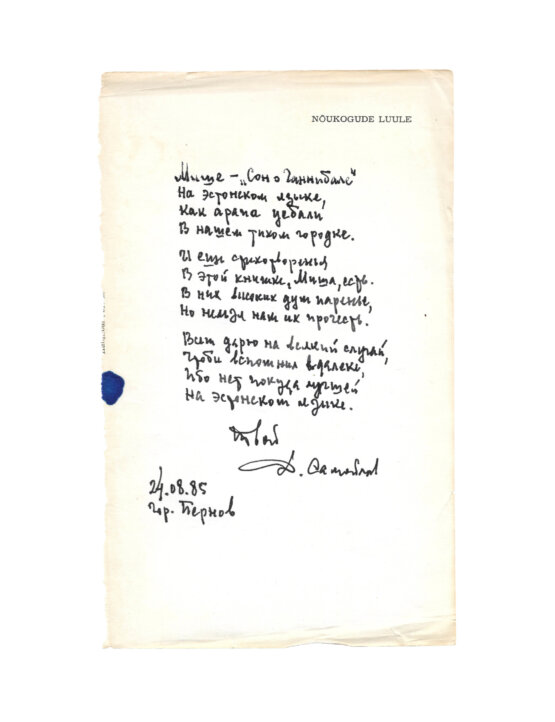 NÕUKOGUDE LUULE
Мише – „Сон о Ганнибале“
На эстонском языке,
Как арапа уебали
В нашем тихом городке.
И еще стихотворенья
В этой книжке, Миша, есть.
В них высоких дум паренье,
Но нельзя нам их прочесть.
Всем дарю на всякий случай,
Чтобы вспомнил вдалеке,
Ибо нет покуда лучшей
На эстонском языке.
Твой
Д. Самойлов
24.08.85
гор. Пернов